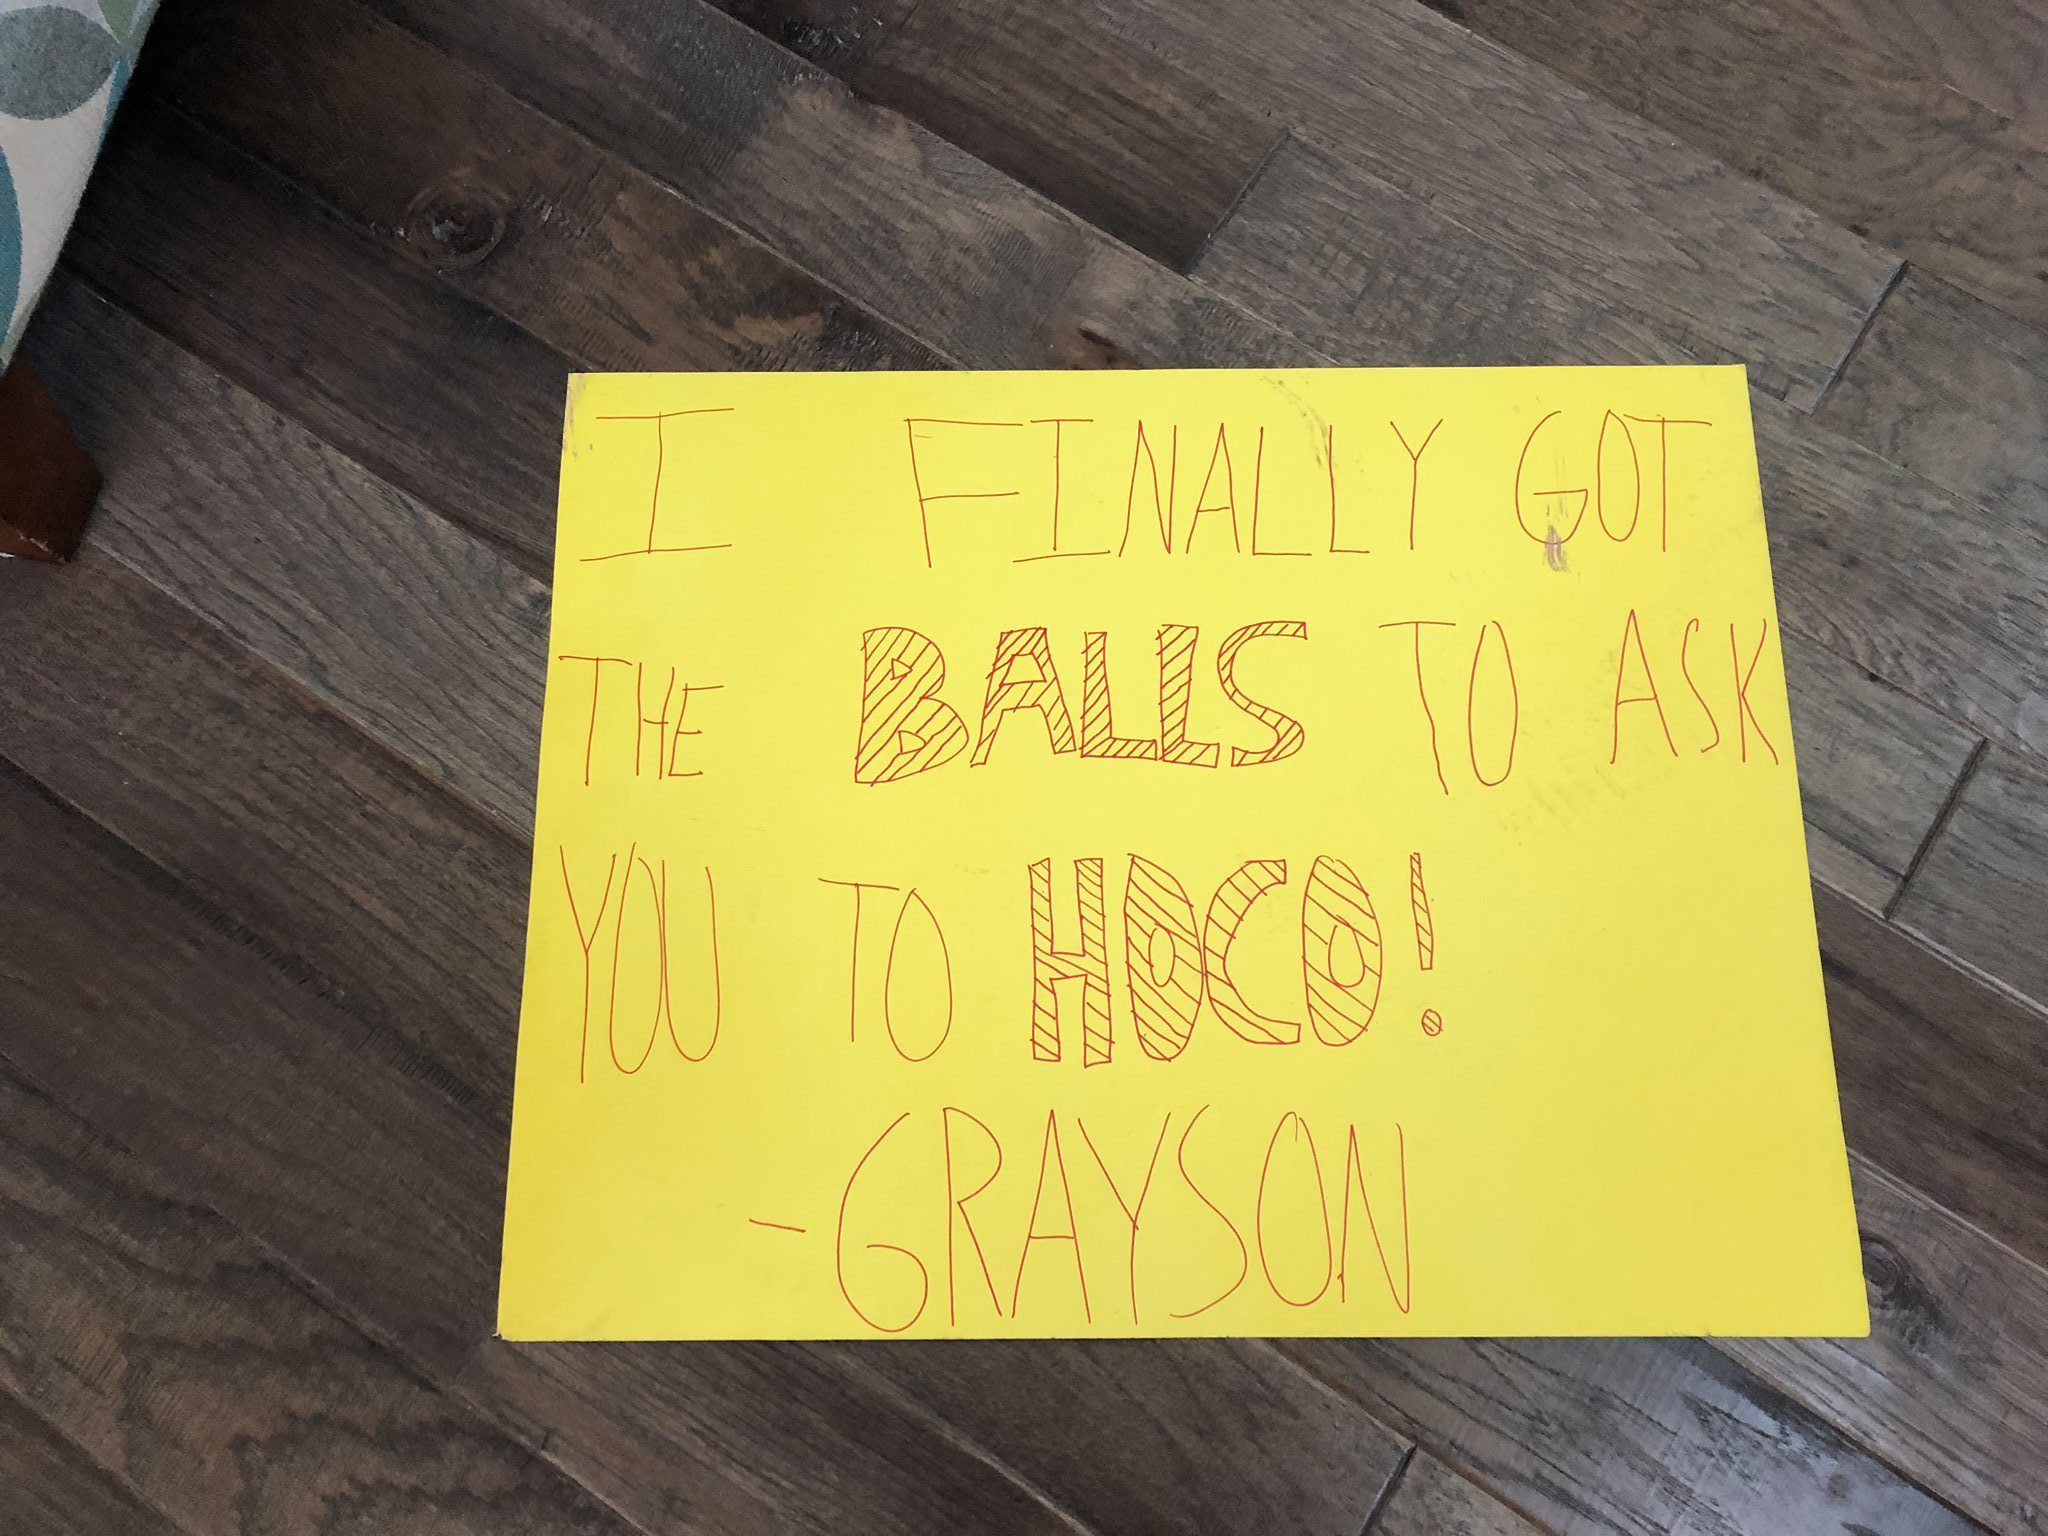 I FINALLY GOT
THE BALLS TO ASK
YOU TO HOCO!
-GRAYSON